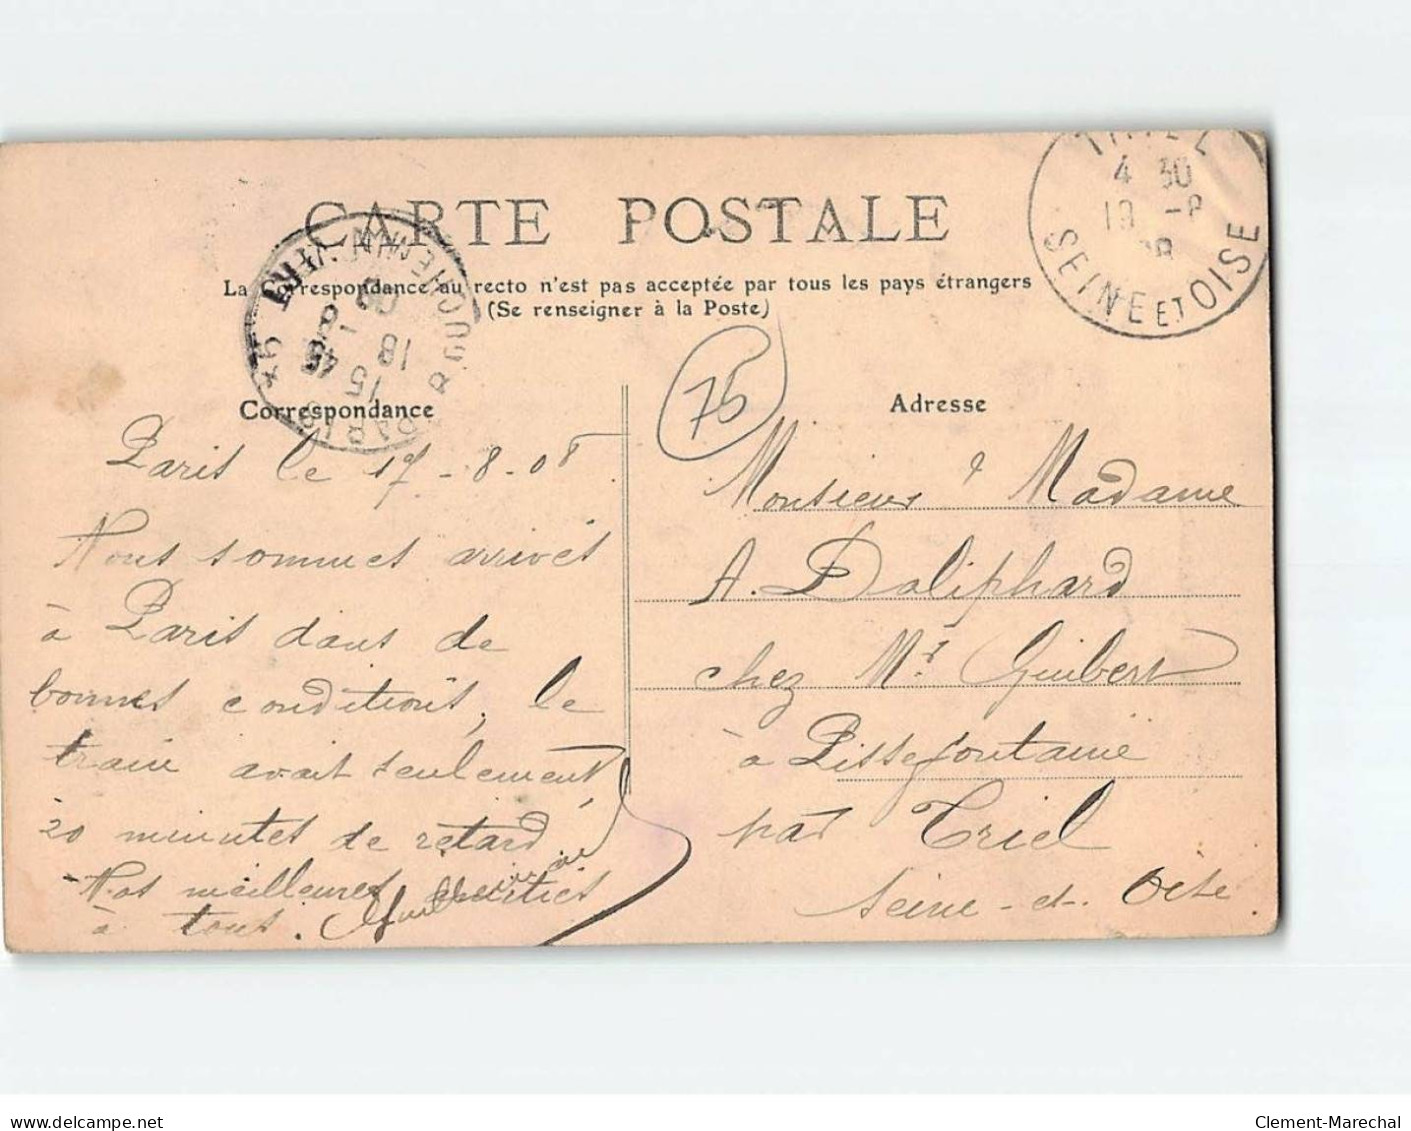 CARTE POSTALE
La Correspondance au recto n'est pas acceptée par tous les pays étrangers
(Se renseigner à la Poste)
TRIEL
4 30
19 -8
08
SEINE ET OISE
PARIS 95
R. DU CHEMIN VERT
15 45
18 -8
08
75
Correspondance
Paris le 17-8-08
Nous sommes arrivés
à Paris dans de
bonnes conditions, le
train avait seulement
20 minutes de retard
Nos meilleures amitiés
à tous.
Adresse
Monsieur & Madame
A. Doliphard
chez Mr Guibert
à Pissefontaine
par Triel
Seine-et-Oise
delcampe.net
Clement-Marechal